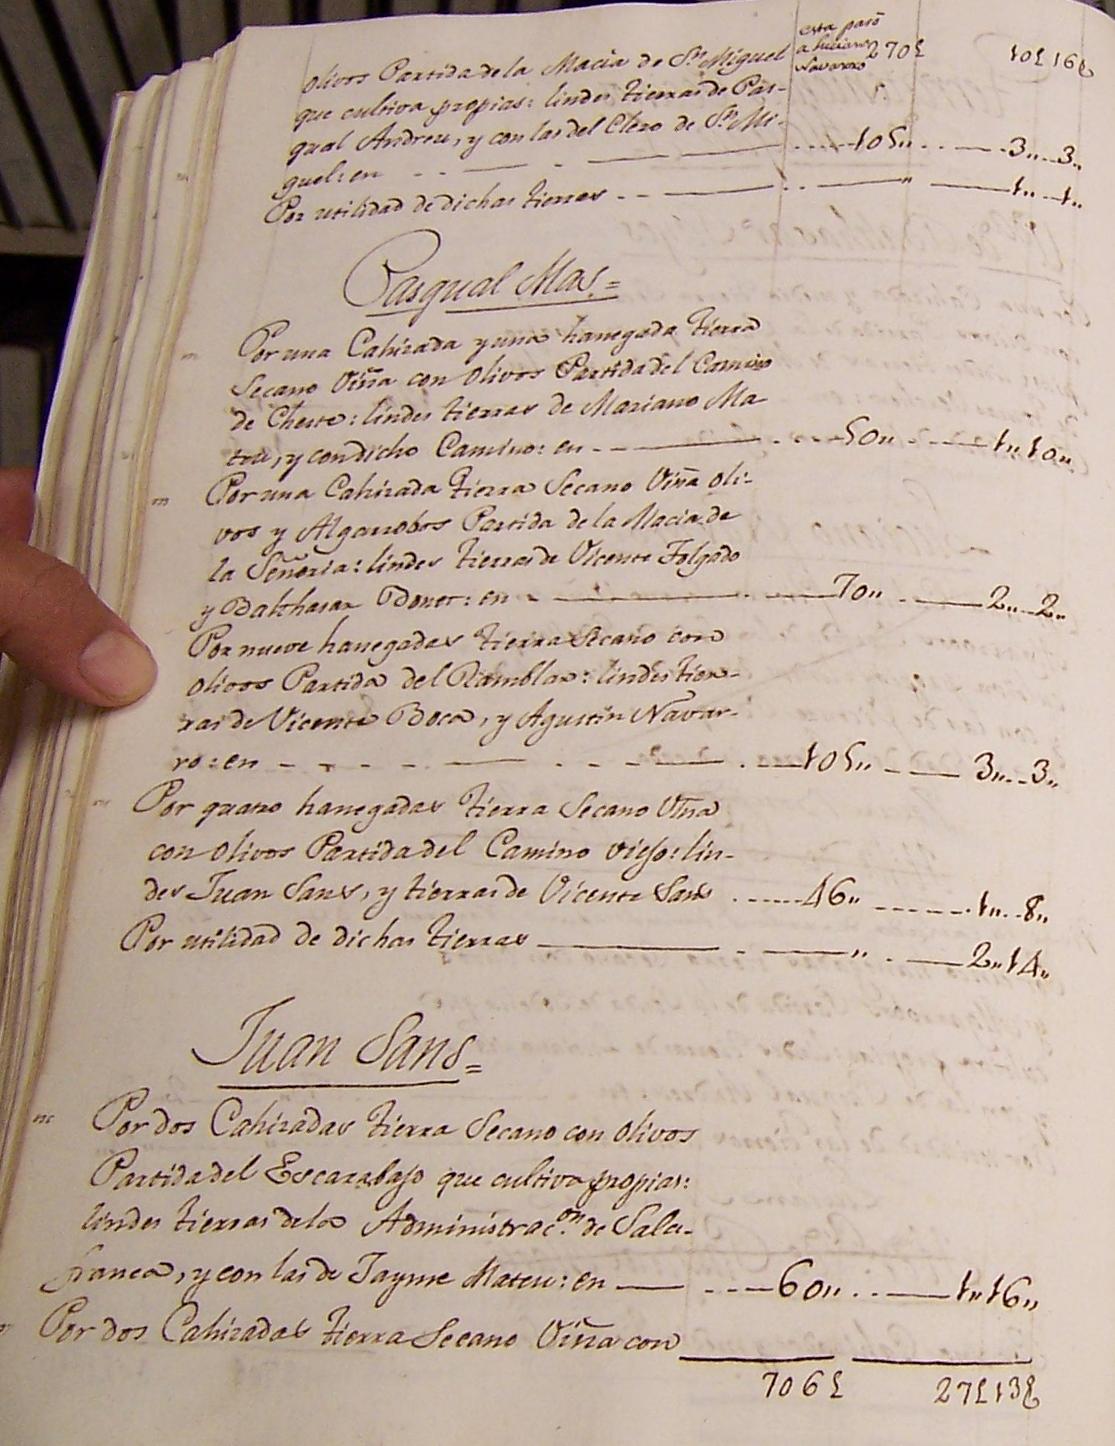 esta pasó
a Luciano
Navarro
270£ 10£16§
olivos Partida de la Macia de Sn. Miguel
que cultiva propias: lindes tierras de Pas-
qual Andreu, y con las del Clero de Sn. Mi-
guel: en 105,, 3,, 3,,
Por utilidad de dichas tierras ,, 1,, 1,,
Pasqual Mas.=
Por una Cahizada y una hanegada tierra
Secano Viña con olivos Partida del Camino
de Cheste: lindes tierras de Mariano Ma
teu, y con dicho Camino: en 50,, 1,, 10,,
Por una Cahizada tierra Secano Viña oli-
vos y Algarrobos Partida de la Macia de
la Señoria: lindes tierras de Vicente Folgado
y Balthasar Bonet: en 70,, 2,, 2,,
Por nueve hanegadas tierra Secano con
olivos Partida del Ramblar: lindes tier-
ras de Vicente Boca, y Agustin Navar-
ro: en 105,, 3,, 3,,
Por quatro hanegadas tierra Secano Viña
con olivos Partida del Camino viejo: lin-
des Juan Sans, y tierras de Vicente Sans 46,, 1,, 8,,
Por utilidad de dichas tierras ,, 2,, 14,,
Juan Sans=
Por dos Cahizadas tierra Secano con olivos
Partida del Escarabajo que cultiva propias:
lindes tierras de la Administracon. de Sala-
franca, y con las de Jayme Mateu: en 60,, 1,, 16,,
Por dos Cahizadas tierra Secano Viña con
706£ 27£13§